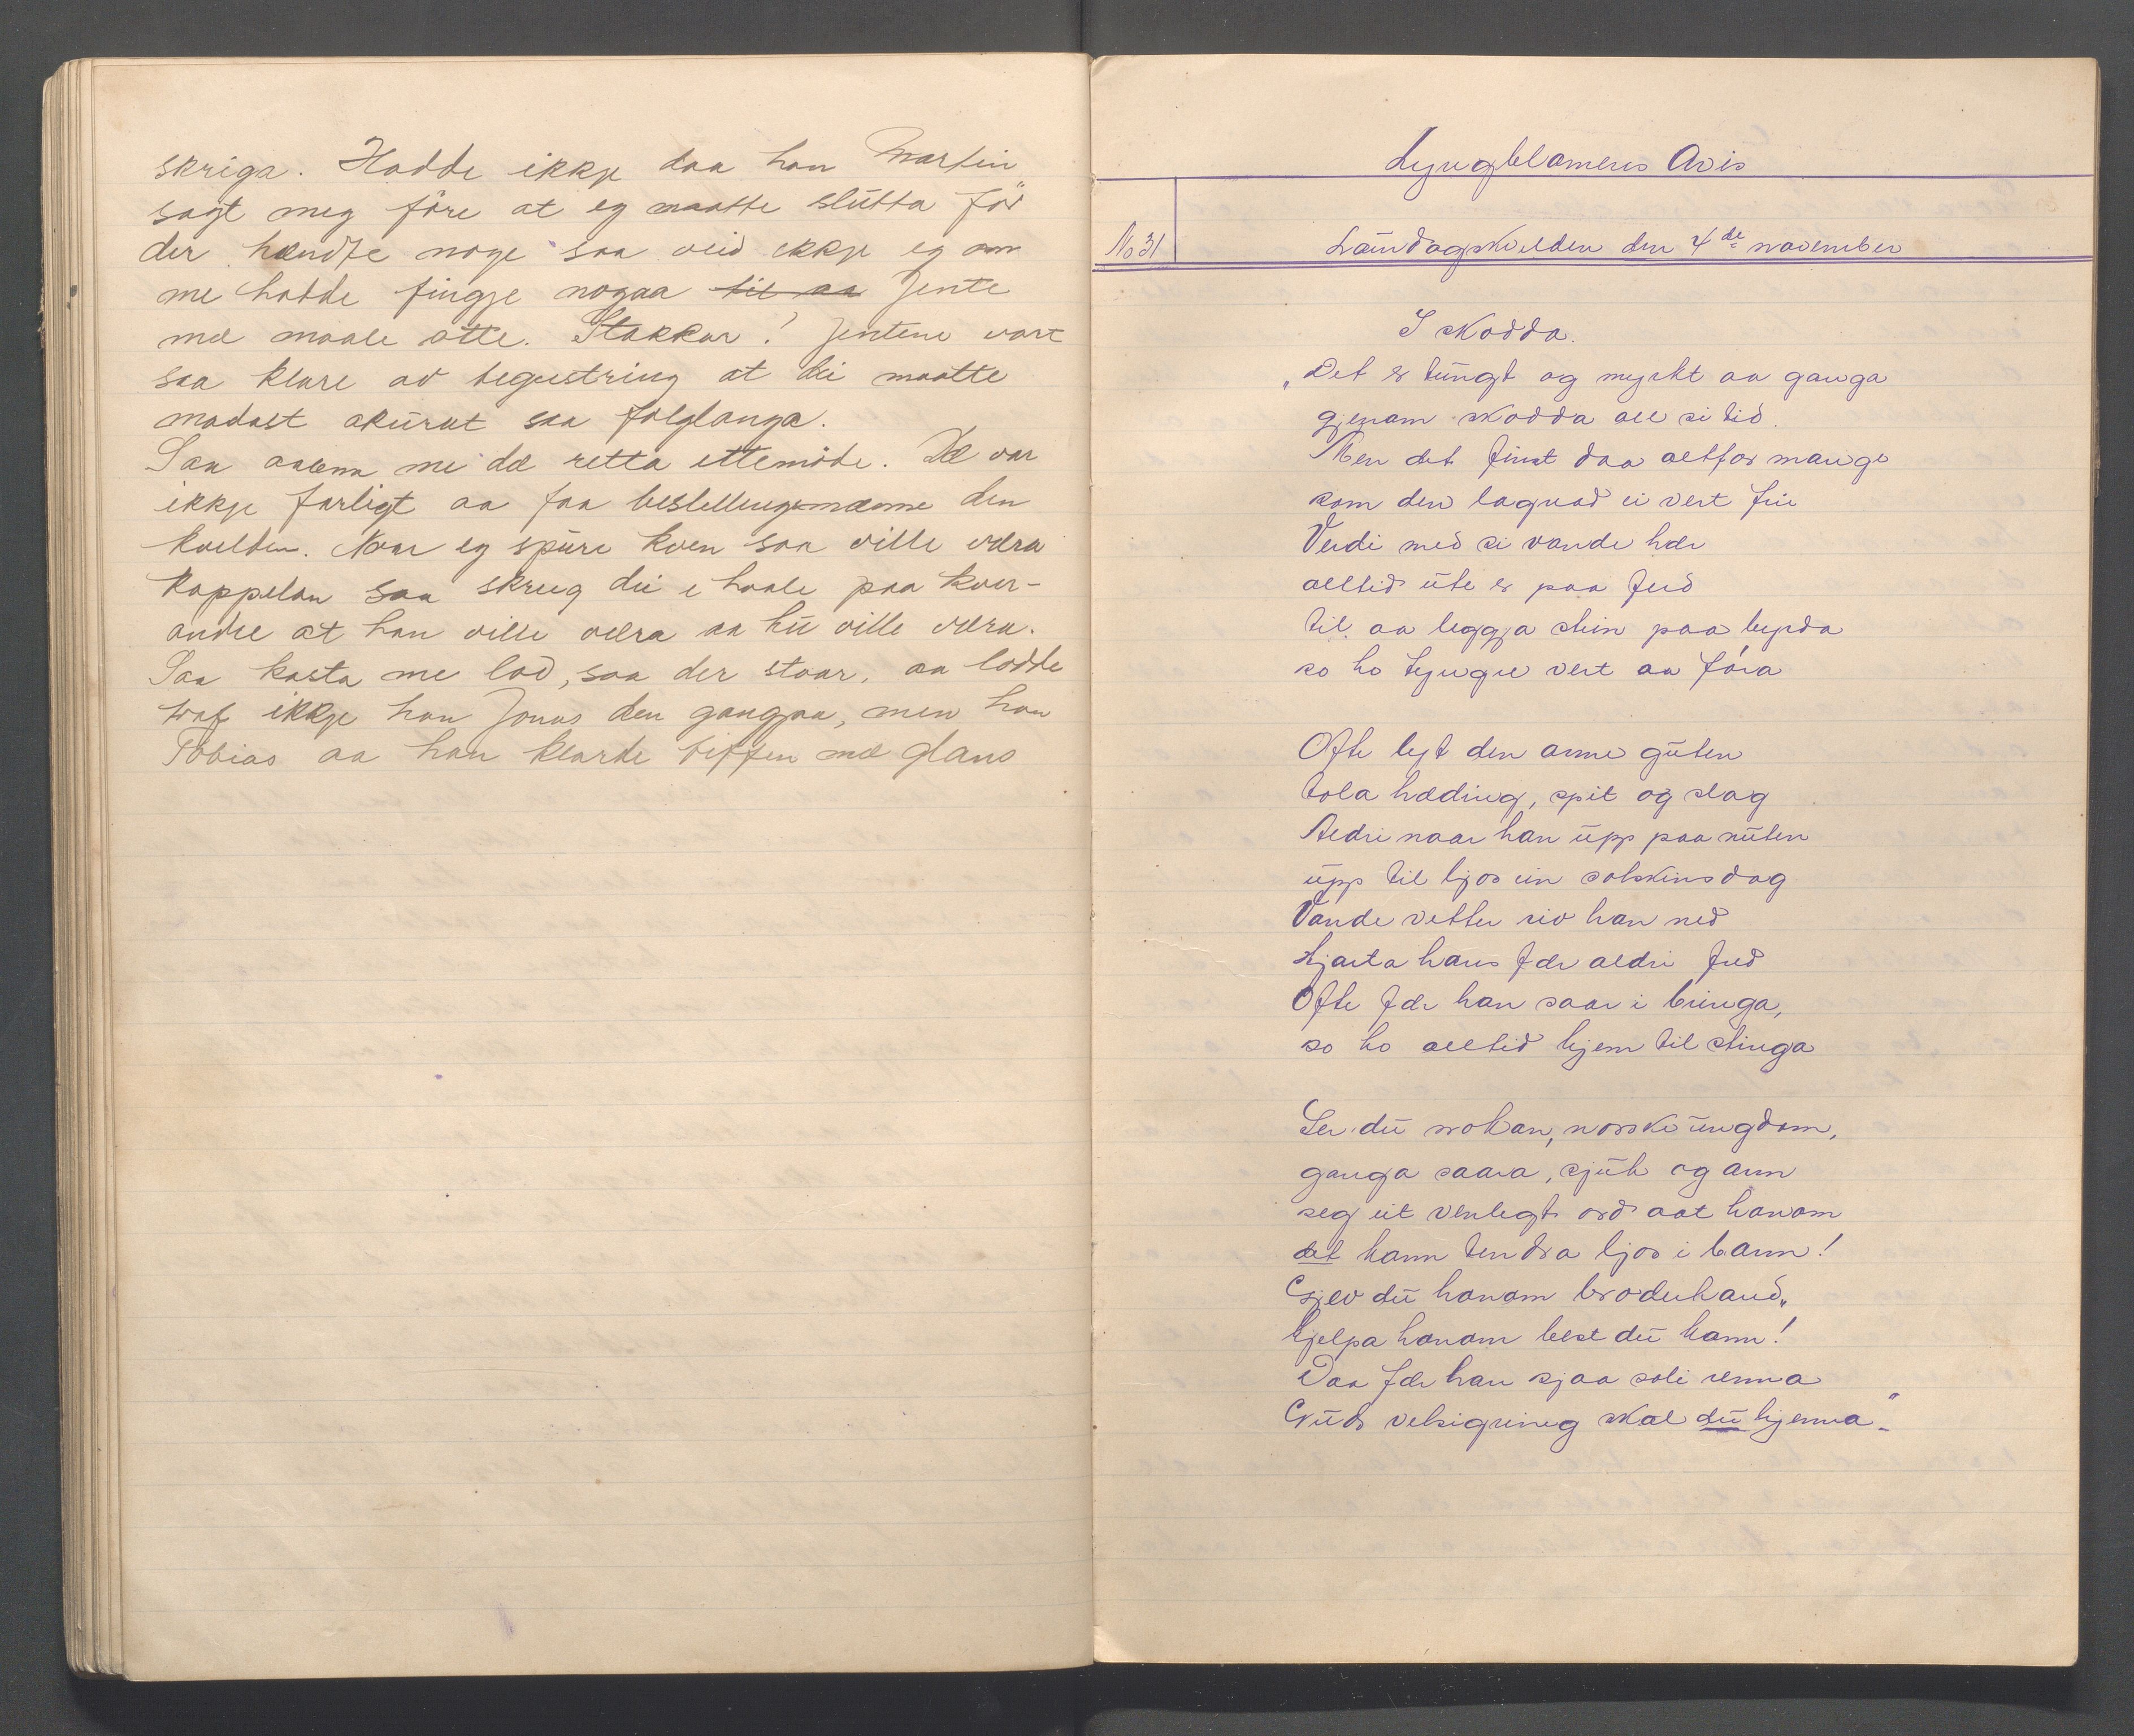 skriga. Hadde ikkje daa han Martin
sagt meg före at eg maatte slütta för
der hændte noge saa veid ikkje eg om
me hadde fingje nogaa til aa Jente
mæ maale atte. Stakkar! Jentene vart
saa klare av begustring at dei maatte
madast akürat saa
Saa me dæ retta ettemöde. Dæ var
ikkje farligt aa faa bestellingsmænne den
kvelden. Naar eg spüre kven saa ville væra
kappelan saa skreig dei i haale paa kver-
andre at han ville væra aa hü ville væra.
Saa kasta me lod, saa der staar, aa lodde
traf ikkje han Jonas den gangjaa, men han
Tobias aa han klarde biffen mæ glans
Lyngblomens Avis
No 31
Laurdagskvelden den 4de november
I skodda.
„Det er tüngt og myrkt aa ganga
gjenom skodda all si tid.
Men det finst daa altfor mange
som den lagnad ei vert fri
Verdi med si vande hær
alltid üte er paa ferd
til aa leggja stein paa byrda
so ho tyngre vert aa föra
Ofte lyt den arme güten
tola hæding, spit og slag
Aldri naar han üpp paa nüten
üpp til ljos ein solskinsdag
Vande vetter riv han ned
Hjarta hans fær aldri fred
Ofte fær han saar i bringa,
so ho alltid kjem til stinga
Ser dü nokan, norske üngdom,
ganga saara, sjük og arm
seg eit venlegt ord aat honom
det kann tendra ljos i barm!
Gjev dü honom broderhand„
hjelpa honom best dü kann!
Daa fær han sjaa soli renna
Güds velsigning skal dü kjenna"